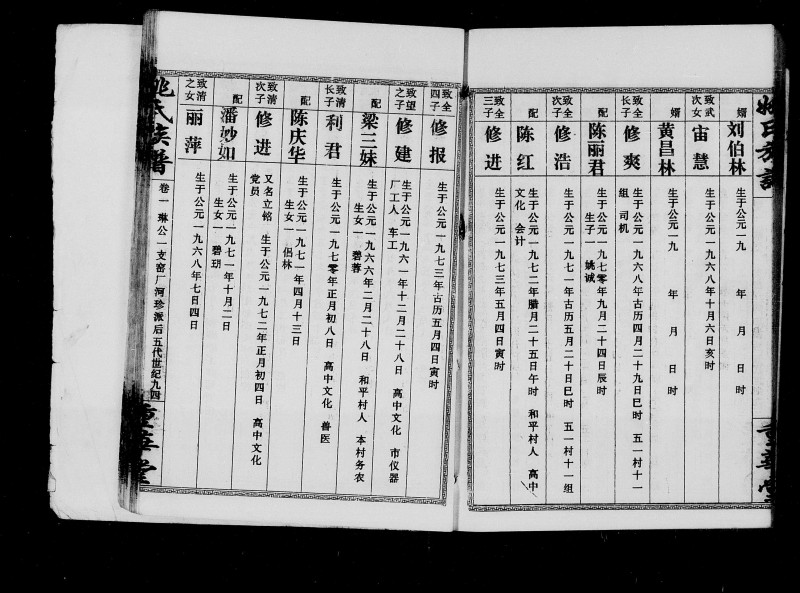 姚氏族谱
重华堂
婿
刘伯林
生于公元一九 年 月 日 时
致武次女
宙慧
生于公元一九六八年十月六日亥时
婿
黄昌林
生于公元一九 年 月 日 时
致全长子
修爽
生于公元一九六八年古历四月二十九日巳时 五一村十一组 司机
配
陈丽君
生于公元一九七零年九月二十四日辰时
生子一 姚诚
致全次子
修浩
生于公元一九七一年古历五月二十日巳时 五一村十一组
配
陈红
生于公元一九七二年腊月二十五日午时 和平村人 高中文化 会计
致全三子
修进
生于公元一九七三年五月四日寅时
致全四子
修报
生于公元一九七三年古历五月四日寅时
致望之子
修建
生于公元一九六一年十二月二十八日 高中文化 市仪器厂工人 车工
配
梁三妹
生于公元一九六六年二月二十八日 和平村人 本村务农
生女一 碧蓉
致清长子
利君
生于公元一九七零年正月初八日 高中文化 兽医
配
陈庆华
生于公元一九七一年四月十三日
生女一 侣林
致清次子
修进
又名立铭 生于公元一九七二年正月初四日 高中文化 党员
配
潘妙如
生于公元一九七一年十月二日
生女一 碧玥
致清之女
丽萍
生于公元一九六八年七日四日
姚氏族谱
卷一 琳公一支窑厂河珍派后五代世纪九四
重华堂